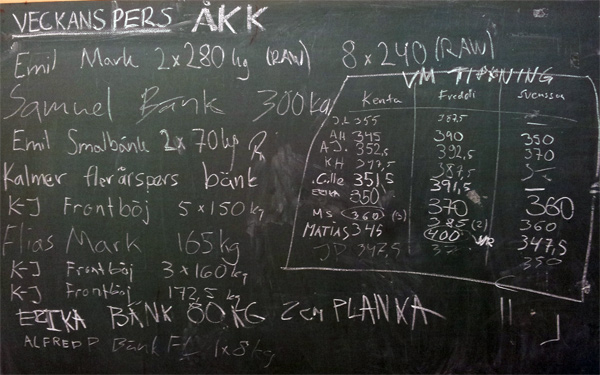 VECKANSPERS ÅKK
Emil Mark 2x280kg (RAW) 8x240 (RAW)
Samuel Bänk 300kg
Emil Smalbänk 2x70kg
Kalmer flerårspers bänk
K-J Frontböj 5x150kg
Elias Mark 165kg
K-J Frontböj 3x160kg
K-J Frontböj 172,5 kg
ERIKA BÄNK 80KG 2cm PLANKA
ALFRED P Bänk
VM TIPPNING
Kenta Freddi Svensson
355 387,5
AH 345 390 350
A.J. 352,5 392,5 370
KH 387,5
Calle 351,5 391,5
ERIKA 350 370 360
MS 360 (3) 385 (2) 360
MATIAS 345 400 347,5
JP 347,5 350